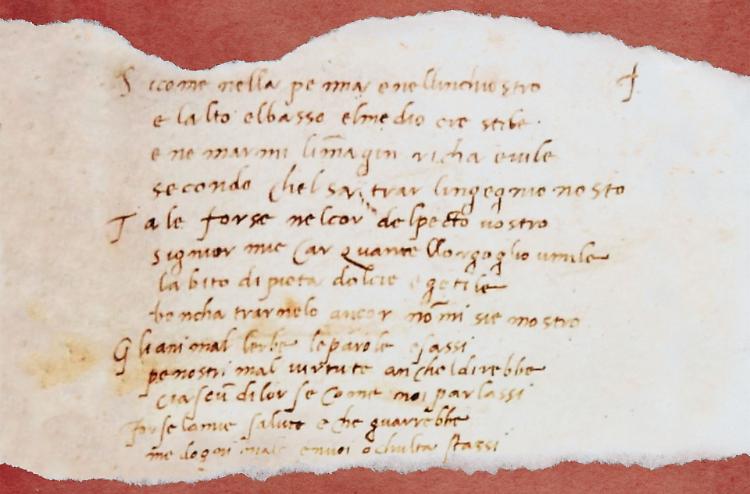 Sicome nella penna e nellinchiostro
e lalto elbasso elmediocre stile
e ne marmi limagin richa e vile
secondo chel sa trar lingegnio nostro
Tale forse nel cor del pecto vostro
signior mie car quante llorgoglio umile
labito di pieta dolcie e gētile
bencha trarnelo ancor nōmi sie mostro
Gli animal lerbe le parole e sassi
pe nostri mal virtute ancheldirebbe
ciascū di lor se come noi parlassi
forse lamie salute e che guarrebbe
me dogni male e nvoi ochulta stassi